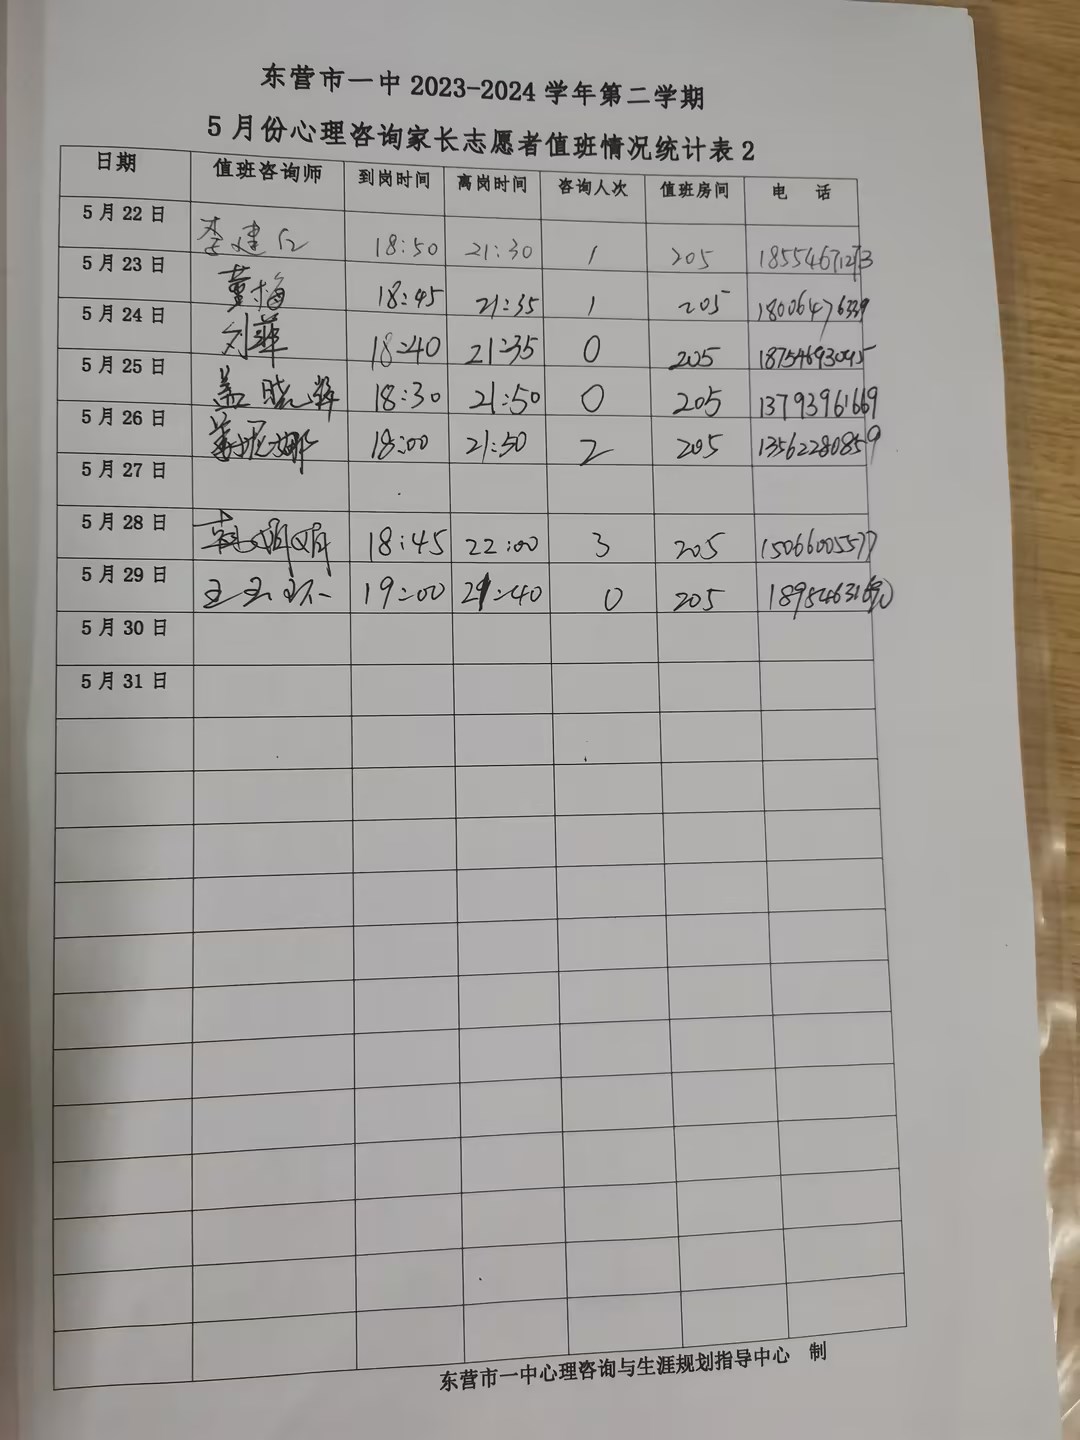 东营市一中 2023-2024 学年第二学期
5 月份心理咨询家长志愿者值班情况统计表 2
日期 值班咨询师 到岗时间 离岗时间 咨询人次 值班房间 电 话
5 月 22 日 李建 18:50 21:30 1 205 18554671273
5 月 23 日 董梅 18:45 21:35 1 205 18006476339
5 月 24 日 刘菲 18:40 21:35 0 205
5 月 25 日 盖晓 18:30 21:50 0 205 13793961669
5 月 26 日 18:00 21:50 2 205 13562280859
5 月 27 日
5 月 28 日 18:45 22:00 3 205 15066005577
5 月 29 日 王玉环 19:00 21:40 0 205
5 月 30 日
5 月 31 日
东营市一中心理咨询与生涯规划指导中心 制